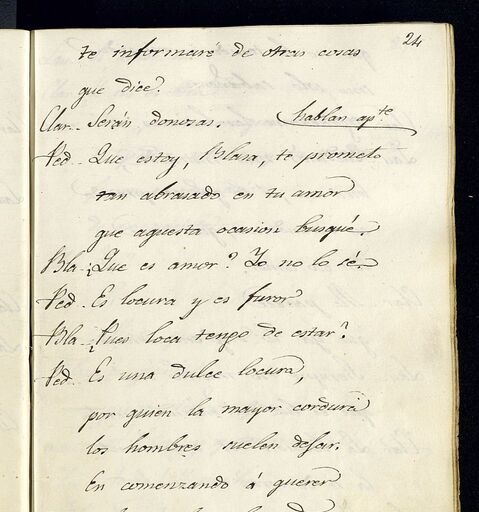 24
te informaré de otras cosas
que dice.
Clar. Serán donosas. hablan apte
Ped. Que estoy, Blasa, te prometo
tan abrasado en tu amor
que aquesta ocasion busqué.
Bla. ¿Que es amor? Yo no lo sé.
Ped. Es locura y es furor
Bla. ¿Pues loca tengo de estar?
Ped. Es una dulce locura,
por quien la mayor cordura
los hombres suelen dejar.
En comenzando á querer